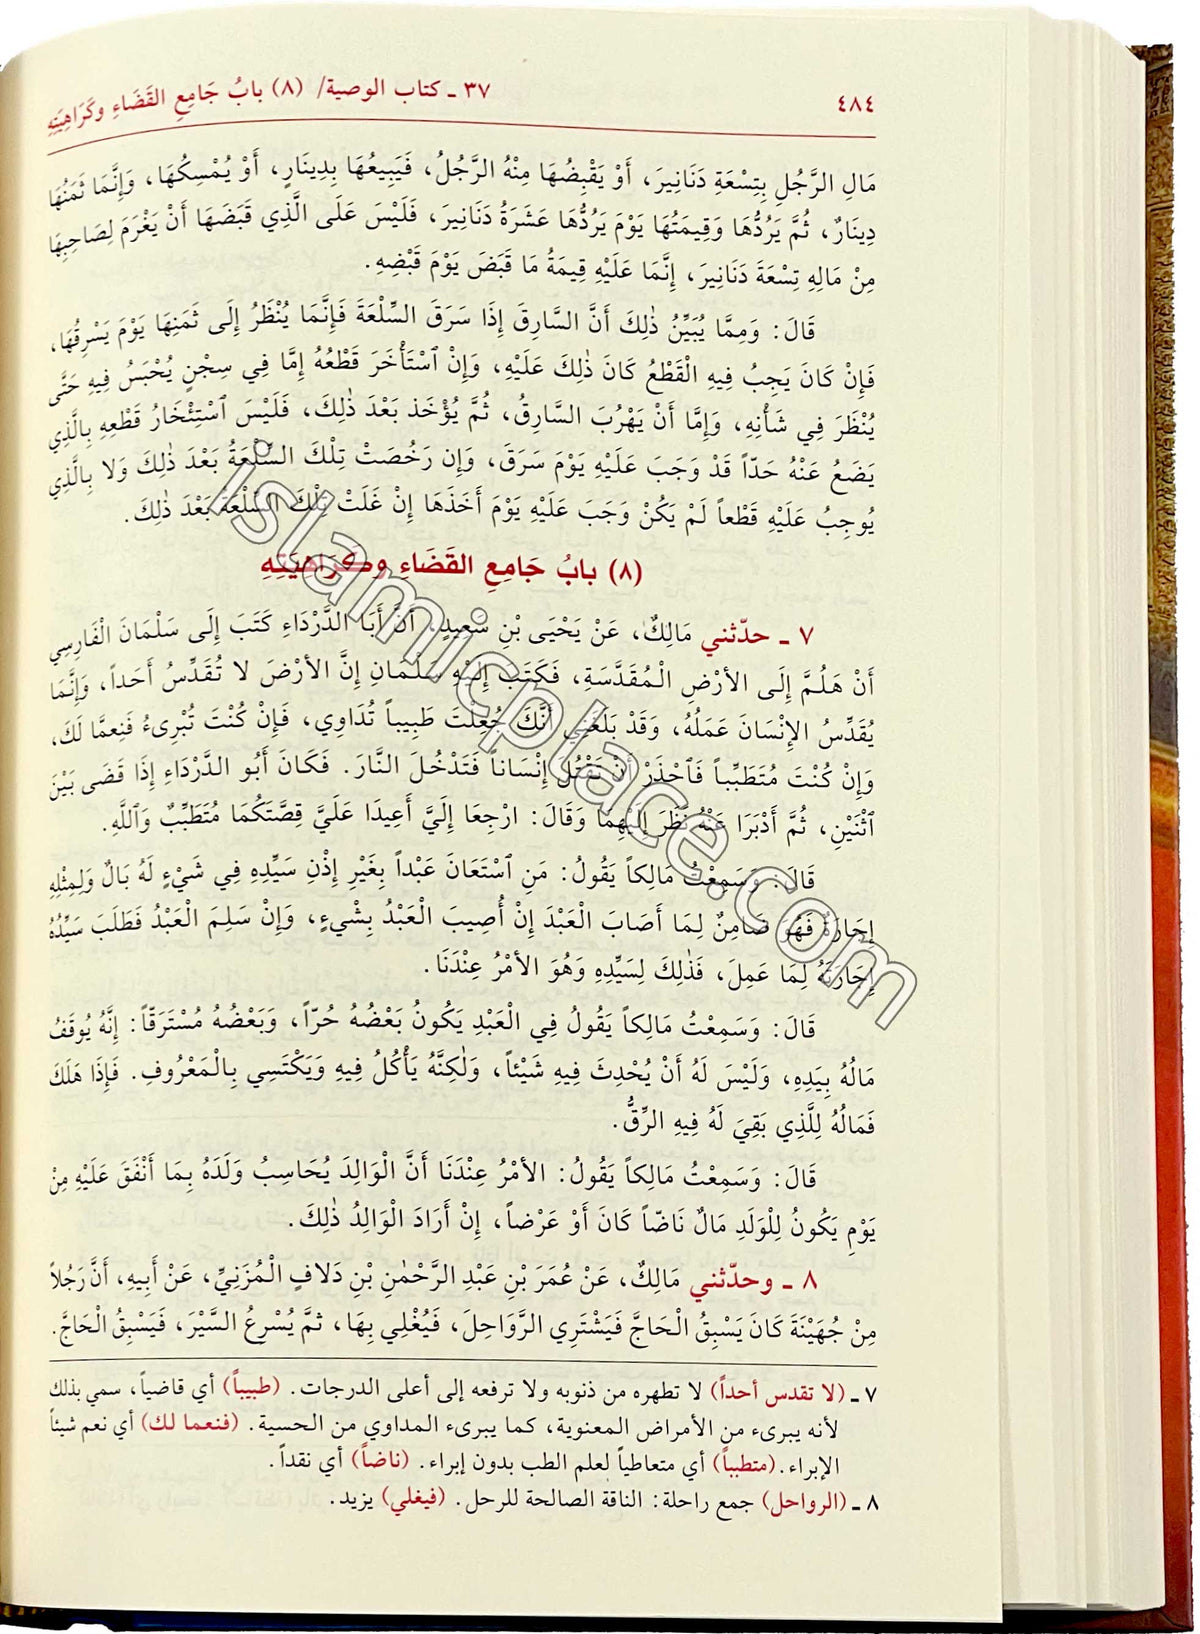 ٤٨٤
٣٧ ـ كتاب الوصية/ (٨) بابُ جَامِعِ القَضَاءِ وكَرَاهِيَتِهِ
مَالِ الرَّجُلِ بِتِسْعَةِ دَنَانِيرَ، أَوْ يَقْبِضُهَا مِنْهُ الرَّجُلُ، فَيَبِيعُهَا بِدِينَارٍ، أَوْ يُمْسِكُهَا، وَإِنَّمَا ثَمَنُهَا
دِينَارٌ، ثُمَّ يَرُدُّهَا وَقِيمَتُهَا يَوْمَ يَرُدُّهَا عَشَرَةُ دَنَانِيرَ، فَلَيْسَ عَلَى الَّذِي قَبَضَهَا أَنْ يَغْرَمَ لِصَاحِبِهَا
مِنْ مَالِهِ تِسْعَةَ دَنَانِيرَ، إِنَّمَا عَلَيْهِ قِيمَةُ مَا قَبَضَ يَوْمَ قَبْضِهِ.
قَالَ: وَمِمَّا يُبَيِّنُ ذٰلِكَ أَنَّ السَّارِقَ إِذَا سَرَقَ السِّلْعَةَ فَإِنَّمَا يُنْظَرُ إِلَى ثَمَنِهَا يَوْمَ يَسْرِقُهَا،
فَإِنْ كَانَ يَجِبُ فِيهِ الْقَطْعُ كَانَ ذٰلِكَ عَلَيْهِ، وَإِنْ ٱسْتَأْخَرَ قَطْعُهُ إِمَّا فِي سِجْنٍ يُحْبَسُ فِيهِ حَتَّى
يُنْظَرَ فِي شَأْنِهِ، وَإِمَّا أَنْ يَهْرُبَ السَّارِقُ، ثُمَّ يُؤْخَذ بَعْدَ ذٰلِكَ، فَلَيْسَ ٱسْتِئْخَارُ قَطْعِهِ بِالَّذِي
يَضَعُ عَنْهُ حَدّاً قَدْ وَجَبَ عَلَيْهِ يَوْمَ سَرَقَ، وَإِن رَخُصَتْ تِلْكَ السِّلْعَةُ بَعْدَ ذٰلِكَ وَلا بِالَّذِي
يُوجِبُ عَلَيْهِ قَطْعاً لَمْ يَكُنْ وَجَبَ عَلَيْهِ يَوْمَ أَخَذَهَا إِنْ غَلَتْ تِلْكَ السِّلْعَةُ بَعْدَ ذٰلِكَ.
(٨) بابُ جَامِعِ القَضَاءِ وكَرَاهِيَتِهِ
٧ ـ حدّثني مَالِكٌ، عَنْ يَحْيَى بْنِ سَعِيدٍ، أَنَّ أَبَا الدَّرْدَاءِ كَتَبَ إِلَى سَلْمَانَ الْفَارِسِي
أَنْ هَلُمَّ إِلَى الأَرْضِ الْمُقَدَّسَةِ، فَكَتَبَ إِلَيْهِ سَلْمَانِ إِنَّ الأرْضَ لا تُقَدِّسُ أَحَداً، وَإِنَّمَا
يُقَدِّسُ الإِنْسَانَ عَمَلُهُ، وَقَدْ بَلَغَنِي أَنَّكَ جُعِلْتَ طَبِيباً تُدَاوِي، فَإِنْ كُنْتَ تُبْرِىءُ فَنِعِمَّا لَكَ،
وَإِنْ كُنْتَ مُتَطَبِّباً فَٱحْذَرْ أَنْ تَقْتُلَ إِنْسَاناً فَتَدْخُلَ النَّارَ. فَكَانَ أَبُو الدَّرْدَاءِ إِذَا قَضَى بَيْنَ
ٱثْنَيْنِ، ثُمَّ أَدْبَرَا عَنْهُ نَظَرَ إِلَيْهِمَا وَقَالَ: ارْجِعَا إِلَيَّ أَعِيدَا عَلَيَّ قِصَّتَكُمَا مُتَطَبِّبٌ وَٱللَّهِ.
قَالَ: وَسَمِعْتُ مَالِكاً يَقُولُ: مَنِ ٱسْتَعَانَ عَبْداً بِغَيْرِ إِذْنِ سَيِّدِهِ فِي شَيْءٍ لَهُ بَالٌ وَلِمِثْلِهِ
إِجَارَةٌ فَهُوَ ضَامِنٌ لِمَا أَصَابَ الْعَبْدَ إِنْ أُصِيبَ الْعَبْدُ بِشْيءٍ، وَإِنْ سَلِمَ الْعَبْدُ فَطَلَبَ سَيِّدُهُ
إِجَارَتَهُ لِمَا عَمِلَ، فَذٰلِكَ لِسَيِّدِهِ وَهُوَ الأمْرُ عِنْدَنَا.
قَالَ: وَسَمِعْتُ مَالِكاً يَقُولُ فِي الْعَبْدِ يَكُونُ بَعْضُهُ حُرّاً، وَبَعْضُهُ مُسْتَرَقّاً: إِنَّهُ يُوقَفُ
مَالُهُ بِيَدِهِ، وَلَيْسَ لَهُ أَنْ يُحْدِثَ فِيهِ شَيْئاً، وَلٰكِنَّهُ يَأْكُلُ فِيهِ وَيَكْتَسِي بِالْمَعْرُوفِ. فَإِذَا هَلَكَ
فَمَالُهُ لِلَّذِي بَقِيَ لَهُ فِيهِ الرِّقُّ.
قَالَ: وَسَمِعْتُ مَالِكاً يَقُولُ: الأمْرُ عِنْدَنَا أَنَّ الْوَالِدَ يُحَاسِبُ وَلَدَهُ بِمَا أَنْفَقَ عَلَيْهِ مِنْ
يَوْمِ يَكُونُ لِلْوَلَدِ مَالٌ نَاضّاً كَانَ أَوْ عَرْضاً، إِنْ أَرَادَ الْوَالِدُ ذٰلِكَ.
٨ ـ وحدّثني مَالِكٌ، عَنْ عُمَرَ بْنِ عَبْدِ الرَّحْمٰنِ بْنِ دَلافٍ الْمُزَنِيِّ، عَنْ أَبِيهِ، أَنَّ رَجُلاً
مِنْ جُهَيْنَةَ كَانَ يَسْبِقُ الْحَاجَّ فَيَشْتَرِي الرَّوَاحِلَ، فَيُغْلِي بِهَا، ثمَّ يُسْرِعُ السَّيْرَ، فَيَسْبِقُ الْحَاجَّ.
٧ ـ (لا تقدس أحداً) لا تطهره من ذنوبه ولا ترفعه إلى أعلى الدرجات. (طبيباً) أي قاضياً، سمي بذلك
لأنه يبرىء من الأمراض المعنوية، كما يبرىء المداوي من الحسية. (فنعما لك) أي نعم شيئاً
الإبراء. (متطبباً) أي متعاطياً لعلم الطب بدون إبراء. (ناضاً) أي نقداً.
٨ ـ (الرواحل) جمع راحلة: الناقة الصالحة للرحل. (فيغلي) يزيد.
islamicplace.com